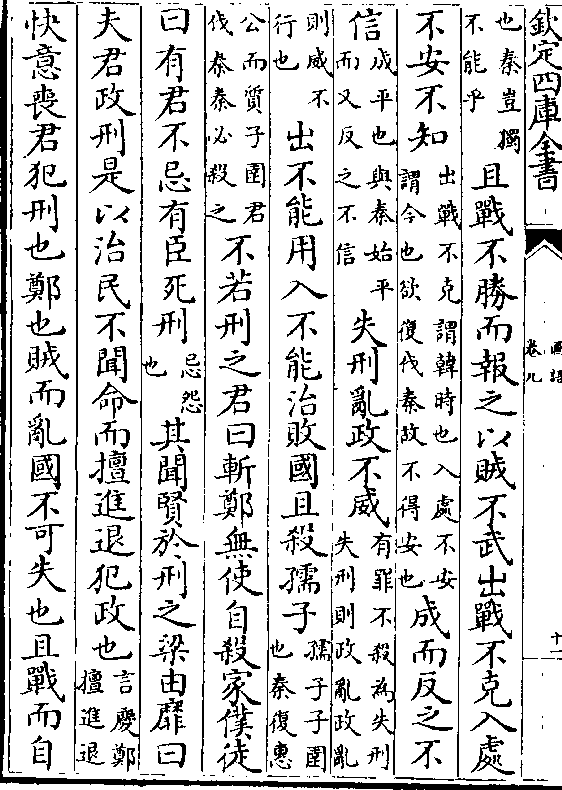 欽定四庫全書
國語
卷九
十一
也秦豈獨不能乎且戰不勝而報之以賊不武出戰不克入處
不安不知出戰不克謂韓時也入處不安謂今也欲復伐秦故不得安也成而反之不
信成平也與秦始平而又反之不信失刑亂政不威有罪不殺為失刑失刑則政亂政亂
則威不行也出不能用入不能治敗國且殺孺子孺子子圉也秦復惠
公而質子圉君伐秦秦必殺之不若刑之君曰斬鄭無使自殺家僕徒
曰有君不忌有臣死刑忌怨也其聞賢於刑之梁由靡曰
夫君政刑是以治民不聞命而擅進退犯政也言慶鄭擅進退
快意喪君犯刑也鄭也賊而亂國不可失也且戰而自